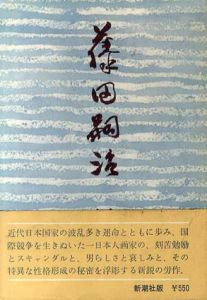 藤田嗣治
近代日本国家の波乱多き運命とともに歩み、国
際競争を生きぬいた一日本人画家の、刻苦勉励
とスキャンダルと、男らしさと哀しみと、その
特異な性格形成の秘密を浮彫する新鋭の労作。
新潮社版 ¥550